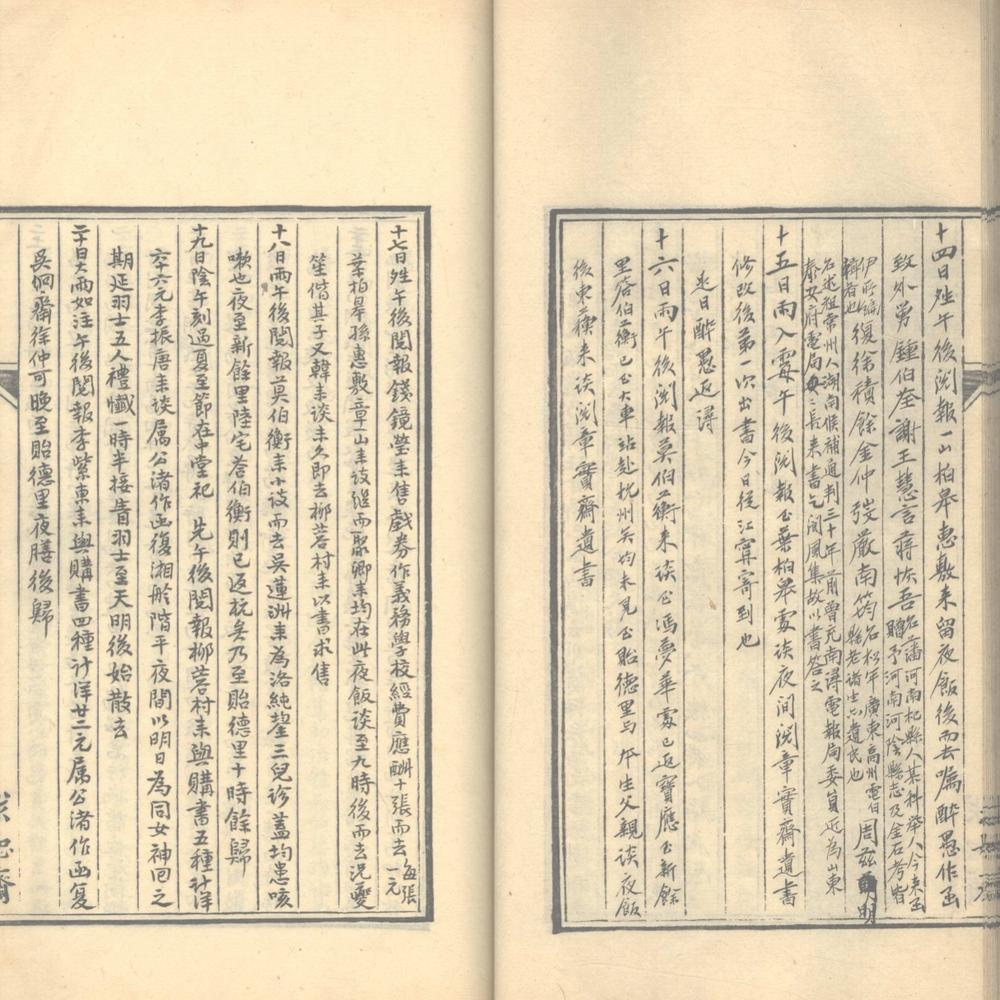 十四日姓午後閱報一山柏皋惠敷来留夜飯後而去囑醉愚作函
致外舅鍾伯荃謝王慧言蔣恢吾名藩河南杞縣人某科舉人今来函贈予河南河陰縣志及金石考皆
伊所編輯者也復徐積餘金仲弢嚴南筠名松年廣東高州電白縣老諸生亦遺民也周茲明
名述祖常州人湖南候補通判三十年前曾充南潯電報局委員近為山東泰安府電局局長来書乞閱風集故以書答之
十五日雨入霉午後閱報至葉柏皋處談夜間閱章實齋遺書
修改後第一次出書今日從江寗寄到也
是日醉愚返潯
十六日雨午後閱報莫伯衡来談至馮夢華處已返寶應至新餘
里答伯衡已至大車站赴杭州矣均未見至貽德里与本生父親談夜飯
後東蓀来談閱章實齋遺書
十七日姓午後閱報錢鏡瑩来售戲券作義務學校經費應酬十張而去每張一元
葉柏皋孫惠敷章一山来談繼而聚卿来均在此夜飯談至九時後而去況夔
笙偕其子又韓来談未久即去柳蓉村来以書求售
十八日雨午後閱報莫伯衡来小談而去吳蓮洲来為洛純鋆三兒診蓋均患咳
嗽也夜至新餘里陸宅答伯衡則已返杭矣乃至貽德里十時餘歸
十九日陰午刻過夏至節在中堂祀 先午後閱報柳蓉村来與購書五種計洋
六十六元李振唐来談属公渚作函復湘舲階平夜間以明日為同女神回之
期延羽士五人禮懺一時半接眚羽士至天明後始散去
二十日大雨如注午後閱報李紫東来與購書四種計洋廿二元属公渚作函复
吳絅齋徐仲可晚至貽德里夜膳後歸